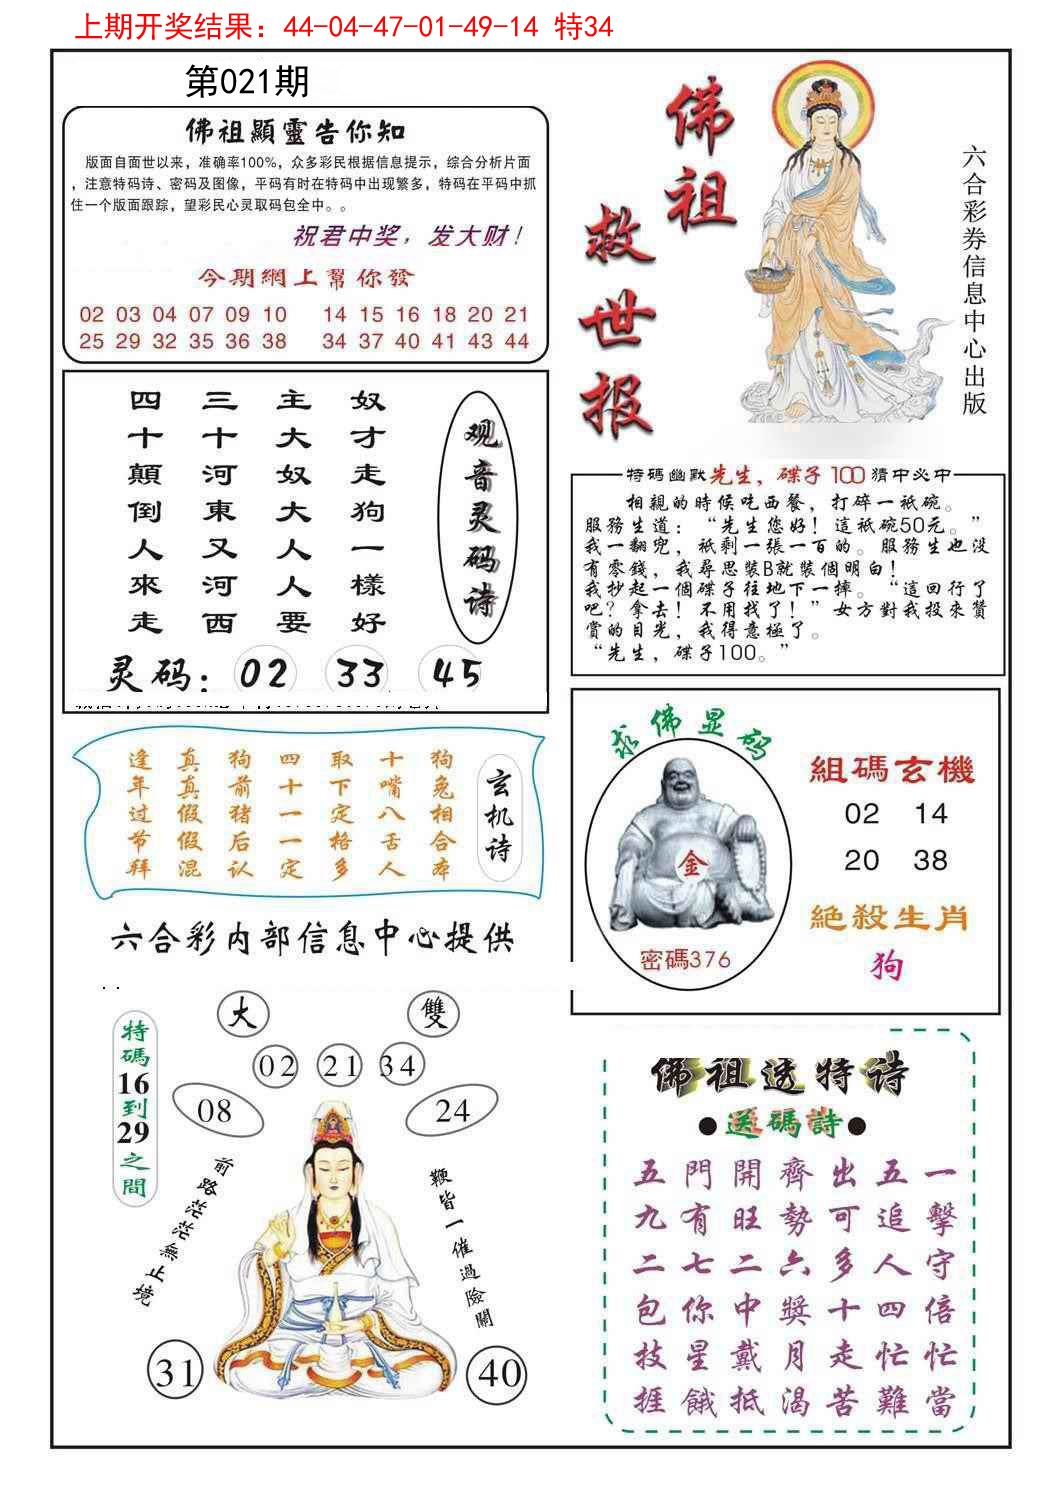 上期开奖结果：44-04-47-01-49-14 特34
第021期
佛祖顯靈告你知
版面自面世以来，准确率100%，众多彩民根据信息提示，综合分析片面
，注意特码诗、密码及图像，平码有时在特码中出现繁多，特码在平码中抓
住一个版面跟踪，望彩民心灵取码包全中。。
祝君中奖，发大财！
今期網上幫你發
02 03 04 07 09 10 14 15 16 18 20 21
25 29 32 35 36 38 34 37 40 41 43 44
佛祖
救世报
六合彩券信息中心出版
观音灵码诗
奴才走狗一樣好
主大奴大人人要
三十河東又河西
四十顛倒人來走
灵码：02 33 45
特碼幽默先生，碟子100猜中必中
相親的時候吃西餐，打碎一祇碗。
服務生道：“先生您好！這祇碗50元。”
我一翻兜，祇剩一張一百的。服務生也没
有零錢，我尋思裝B就裝個明白！
我抄起一個碟子往地下一摔。“這回行了
吧？拿去！不用找了！”女方對我投來贊
賞的目光，我得意極了。
“先生，碟子100。”
玄机诗
狗兔相合本
十嘴八舌人
取下定格多
四十一一定
狗前猪后认
真真假假混
逢年过节拜
六合彩内部信息中心提供
求佛显码
金
密碼376
組碼玄機
02 14
20 38
絕殺生肖
狗
特碼16到29之間
大
雙
02 21 34
08
24
前路茫茫無止境
鞭皆一催過險關
31
40
佛祖透特诗
●送碼詩●
五門開齊出五一
九有旺勢可追擊
二七二六多人守
包你中獎十四倍
技星戴月走忙忙
捱餓抵渴苦難當